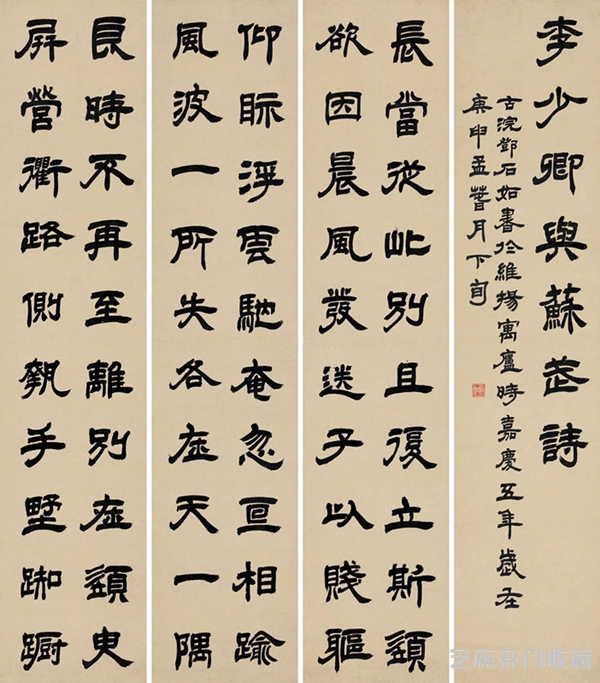 良時不再至離別在須臾
屏營衢路側執手墅踟躕
仰眎浮雲馳奄忽互相踰
風波一所失各在天一隅
長當從此別且復立斯須
欲因晨風發送子以賤軀
李少卿與蘇武詩
古浣鄧石如書於維揚寓廬時嘉慶五年歲在
庚申孟萅月下旬
芝麻开门收藏